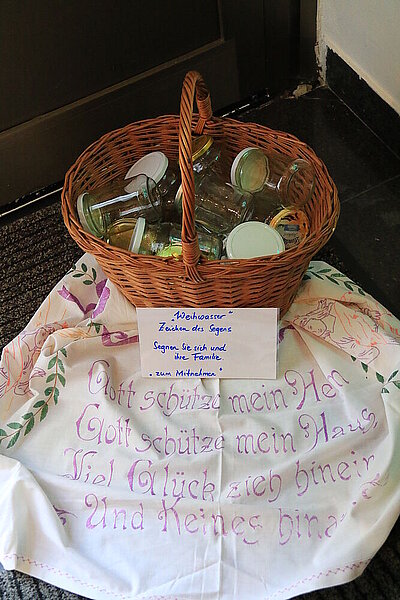 "Weihwasser"
Zeichen des Segens
Segnen Sie sich und
ihre Familie
"zum Mitnehmen"
Gott schütze mein
Gott schütze mein Haus,
Viel Glück zieh hinein
Und Keines